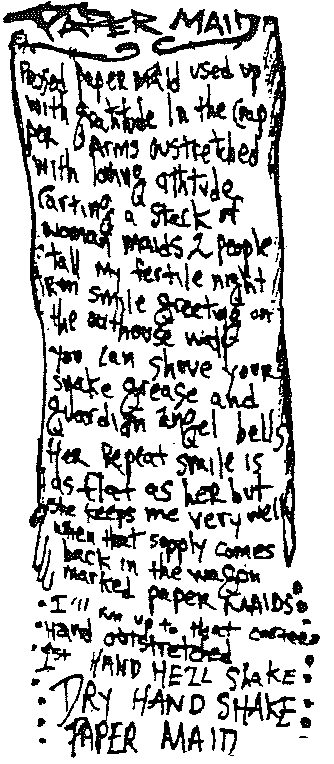 PAPER MAID
Posed paper maid used up
with gratitude in the crap
per Arms oustretched
with loving attitude
Carting a stack of
woman maids 2 people
tall my fertile night
from smile greeting on
the outhouse wall
you can shove yours
snake grease and
guardian angel bells
Her Repeat smile is
as flat as her but
she keeps me very well
when that supply comes
back in the wagon
marked paper MAIDS
I'll run up to that
Hand outstretched
1st HAND HELL Shake
DRY HAND SHAKE
PAPER MAID